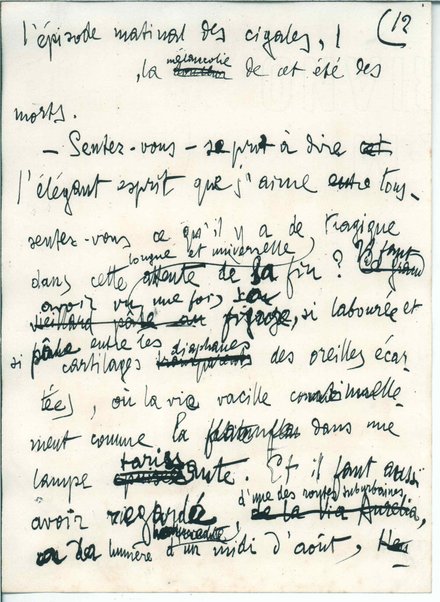 (12
l'épisode matinal des cigales,
mélancolie
la de cet été des
morts.
— Sentez-vous — se prit à dire cet
l'élégant esprit que j'aime entre tous —
sentez-vous ce qu'il y a de tragique
longue et universelle
dans cette attente de la fin ? Il faut
avoir vu, une fois, son
vieillard pâle au visage, si labourée et
si pâle entre les diaphanes
cartilages transparents des oreilles écar-
tées, où la vie vacille continuelle-
ment comme la dans une
lampe tarissante. Et il faut aussi
d'une des routes suburbaines,
avoir regardé de la via Aurélia,
la lumière d'un midi d'août,